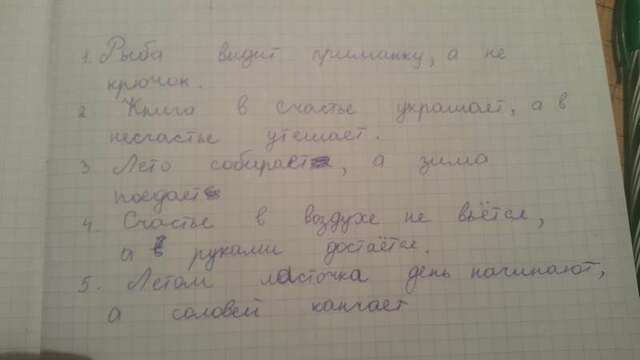 1. Рыба видит приманку, а не
крючок.
2 Книга в счастье украшает, а в
несчастье утешает.
3 Лето собирает, а зима
поедает
4. Счастье в воздухе не вьётся,
а руками достаётся.
5. Летом ласточка день начинают,
а соловей кончает